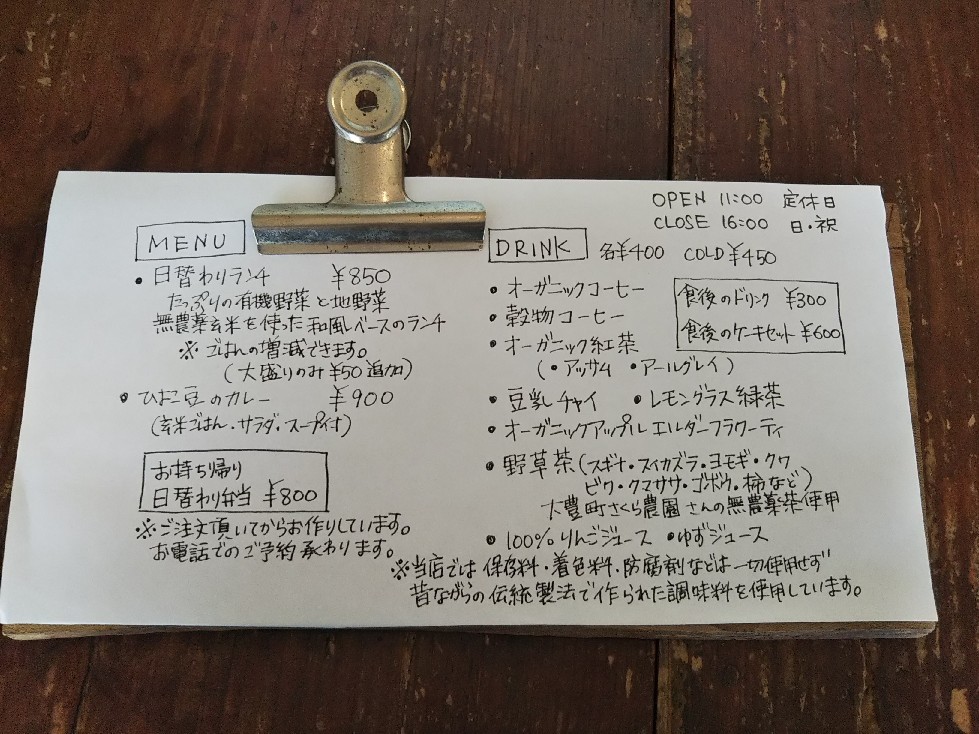 OPEN 11:00 定休日
CLOSE 16:00 日・祝
MENU
・日替わりランチ ¥850
たっぷりの有機野菜と地野菜
無農薬玄米を使った和風ベースのランチ
※ごはんの増減できます。
(大盛りのみ¥50追加)
・ひよこ豆のカレー ¥900
(玄米ごはん・サラダ・スープ付)
お持ち帰り
日替わり弁当 ¥800
※ご注文頂いてからお作りしています。
お電話でのご予約承わります。
DRINK 各¥400 COLD¥450
・オーガニックコーヒー
・穀物コーヒー
・オーガニック紅茶
(・アッサム ・アールグレイ)
食後のドリンク ¥300
食後のケーキセット ¥600
・豆乳チャイ ・レモングラス緑茶
・オーガニックアップルエルダーフラワーティ
・野草茶(スギナ・スイカズラ・ヨモギ・クワ
ビワ・クマササ・ゴボウ・柿など)
大豊町さくら農園さんの無農薬茶使用
・100%りんごジュース ・ゆずジュース
※当店では保存料・着色料・防腐剤などは一切使用せず
昔ながらの伝統製法で作られた調味料を使用しています。